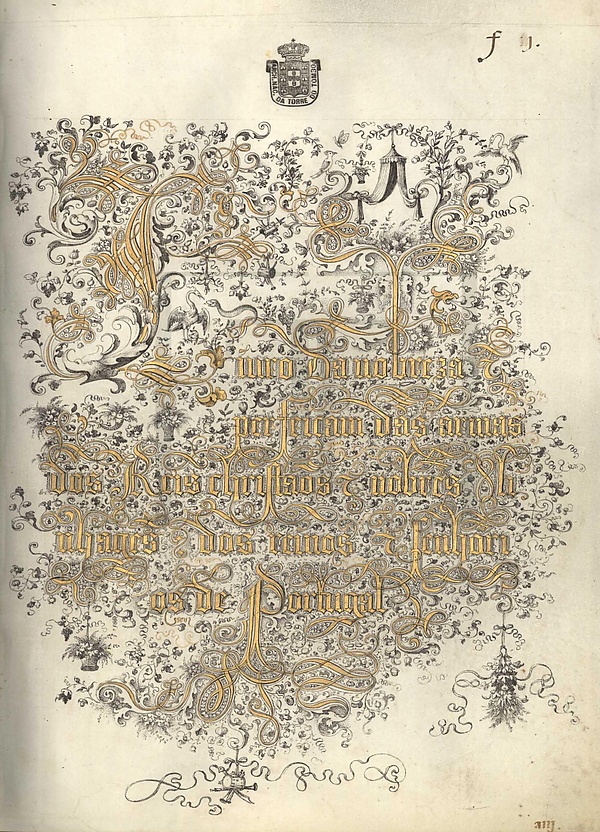 f iij.
ARCH. NAC. DA TORRE DO TOMBO
Liuro da nobreza ⁊
perfeicam das armas
dos Reis christaõs ⁊ nobres li
nhages̃ ⁊ dos reinos ⁊ senhori
os de Portugal
aiij